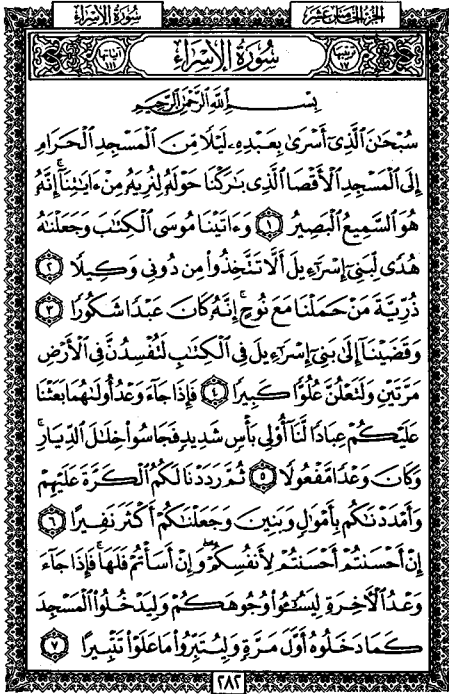 سُورَةُ الإِسْرَاءِ
الجُزْءُ الخَامِسَ عَشَرَ
سُورَةُ الإِسْرَاءِ
بِسْمِ اللَّهِ الرَّحْمَٰنِ الرَّحِيمِ
سُبْحَٰنَ ٱلَّذِىٓ أَسْرَىٰ بِعَبْدِهِۦ لَيْلًا مِّنَ ٱلْمَسْجِدِ ٱلْحَرَامِ
إِلَى ٱلْمَسْجِدِ ٱلْأَقْصَا ٱلَّذِى بَٰرَكْنَا حَوْلَهُۥ لِنُرِيَهُۥ مِنْ ءَايَٰتِنَآ ۚ إِنَّهُۥ
هُوَ ٱلسَّمِيعُ ٱلْبَصِيرُ ١ وَءَاتَيْنَا مُوسَى ٱلْكِتَٰبَ وَجَعَلْنَٰهُ
هُدًى لِّبَنِىٓ إِسْرَٰٓءِيلَ أَلَّا تَتَّخِذُوا۟ مِن دُونِى وَكِيلًا ٢
ذُرِّيَّةَ مَنْ حَمَلْنَا مَعَ نُوحٍ ۚ إِنَّهُۥ كَانَ عَبْدًا شَكُورًا ٣
وَقَضَيْنَآ إِلَىٰ بَنِىٓ إِسْرَٰٓءِيلَ فِى ٱلْكِتَٰبِ لَتُفْسِدُنَّ فِى ٱلْأَرْضِ
مَرَّتَيْنِ وَلَتَعْلُنَّ عُلُوًّا كَبِيرًا ٤ فَإِذَا جَآءَ وَعْدُ أُولَىٰهُمَا بَعَثْنَا
عَلَيْكُمْ عِبَادًا لَّنَآ أُو۟لِى بَأْسٍ شَدِيدٍ فَجَاسُوا۟ خِلَٰلَ ٱلدِّيَارِ ۚ
وَكَانَ وَعْدًا مَّفْعُولًا ٥ ثُمَّ رَدَدْنَا لَكُمُ ٱلْكَرَّةَ عَلَيْهِمْ
وَأَمْدَدْنَٰكُم بِأَمْوَٰلٍ وَبَنِينَ وَجَعَلْنَٰكُمْ أَكْثَرَ نَفِيرًا ٦
إِنْ أَحْسَنتُمْ أَحْسَنتُمْ لِأَنفُسِكُمْ ۖ وَإِنْ أَسَأْتُمْ فَلَهَا ۚ فَإِذَا جَآءَ
وَعْدُ ٱلْءَاخِرَةِ لِيَسُۥٓـُٔوا۟ وُجُوهَكُمْ وَلِيَدْخُلُوا۟ ٱلْمَسْجِدَ
كَمَا دَخَلُوهُ أَوَّلَ مَرَّةٍ وَلِيُتَبِّرُوا۟ مَا عَلَوْا۟ تَتْبِيرًا ٧
٢٨٢